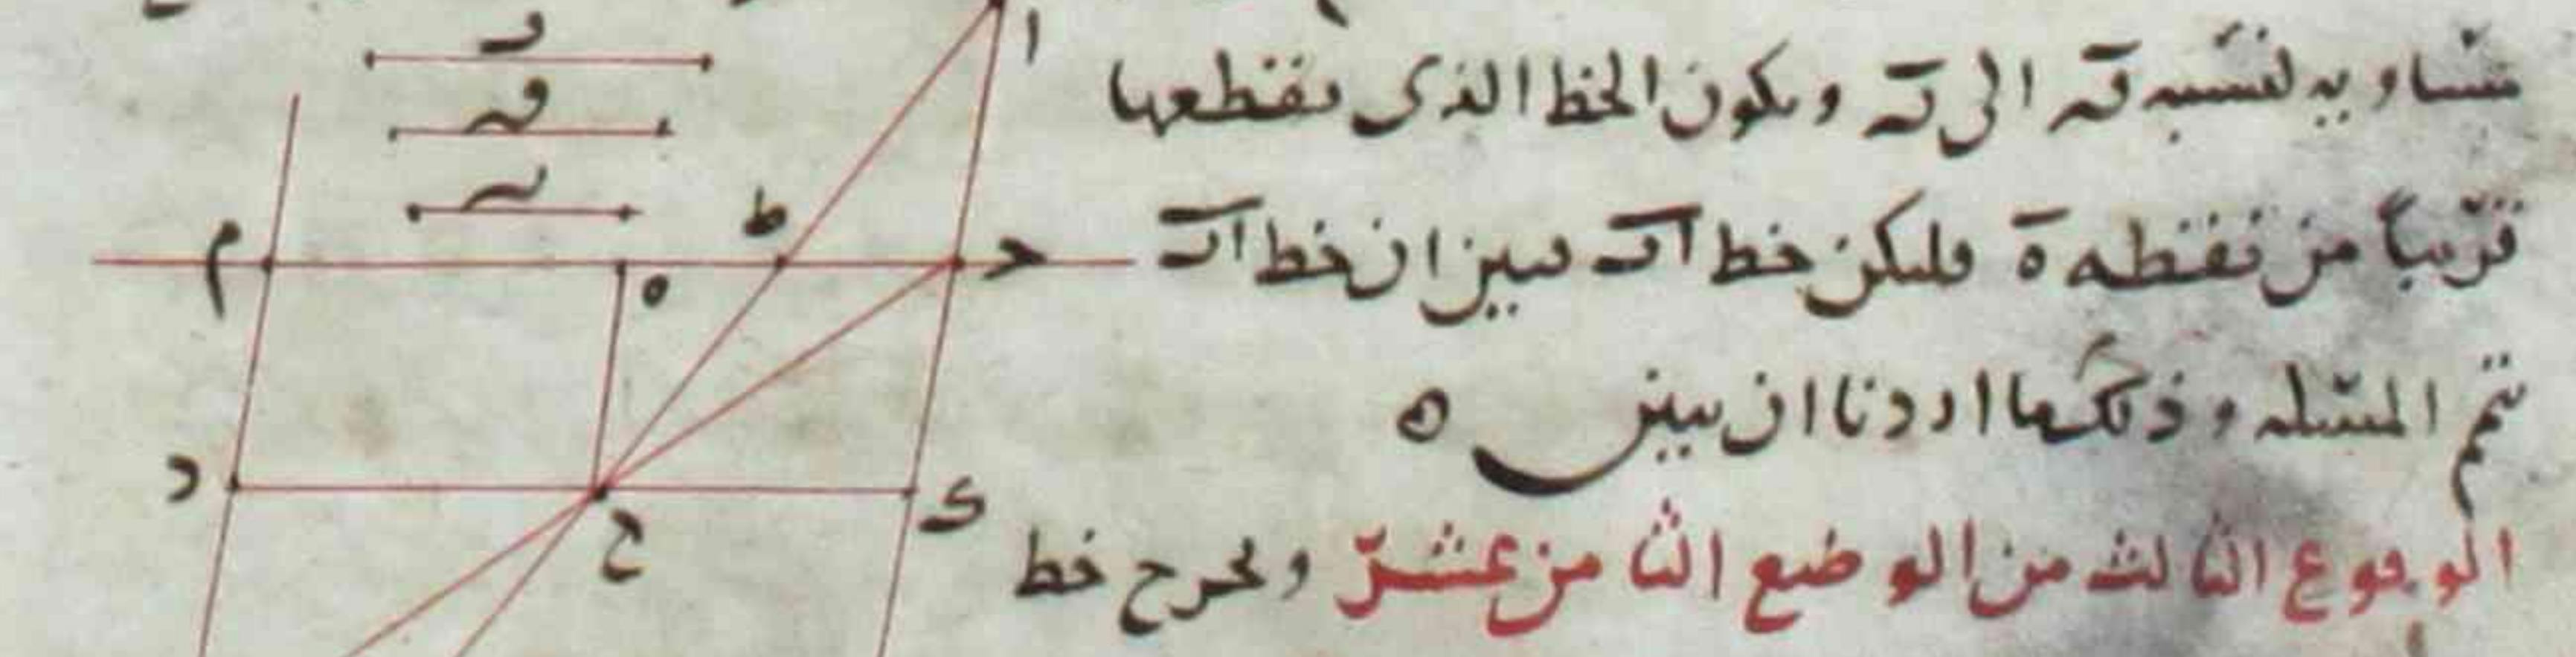 مساوية لنسبة قه الى ته ويكون الخط الذى نقطعها
قريباً من نقطه ه فليكن خط اكـ فبين ان خط اكـ
تتم المسئله وذلك ما اردنا ان نبين ه
الوقوع الثالث من الوضع الثامن عشر ونخرج خط
ا
ر
ق
ط
م
ه
ح
د
ح
ك